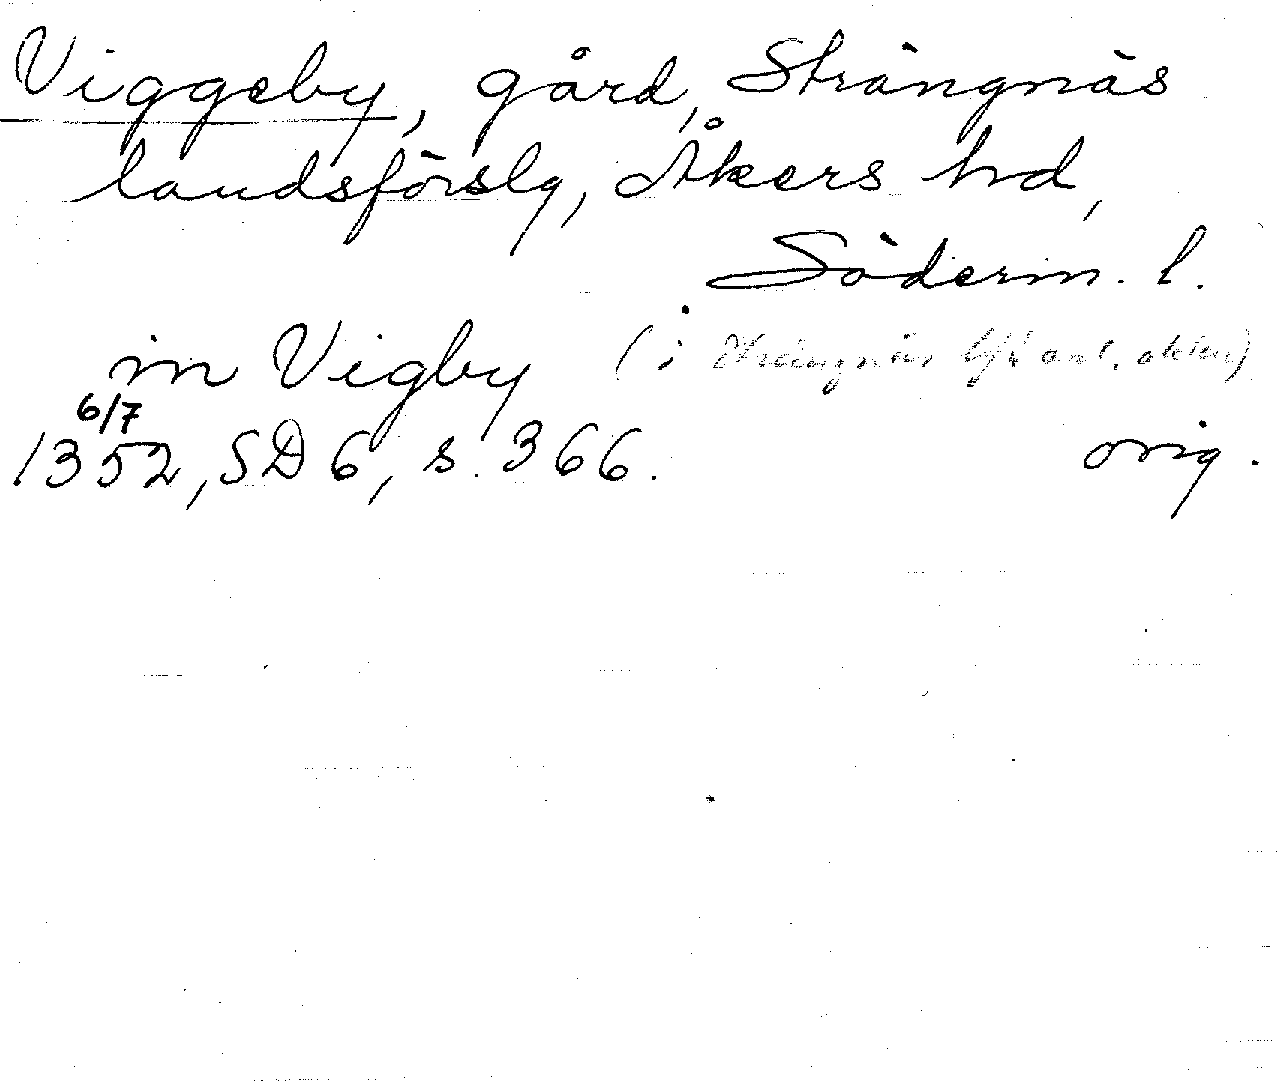 Viggeby, gård, Strängnäs
landsförslg, Åkers hd,
Söderm. l.
in Vigby (i Strängnäs lfs ant. akten)
6/7
1352, SD 6, s. 366. orig.